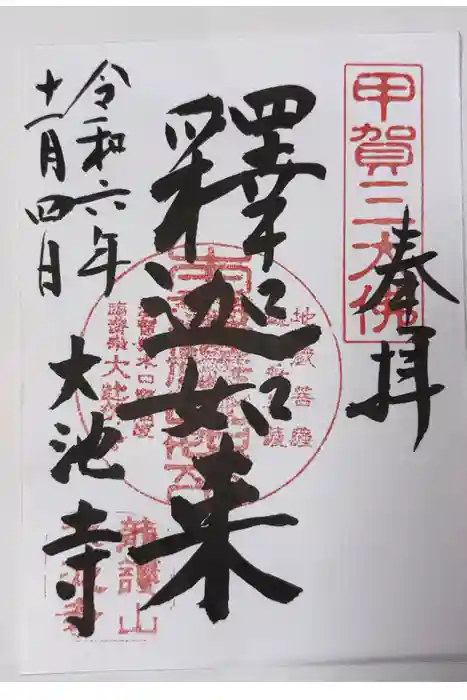 甲賀三大佛
奉拝
釋迦如来
地蔵菩薩
令和六年
十一月四日
大池寺
龍護山